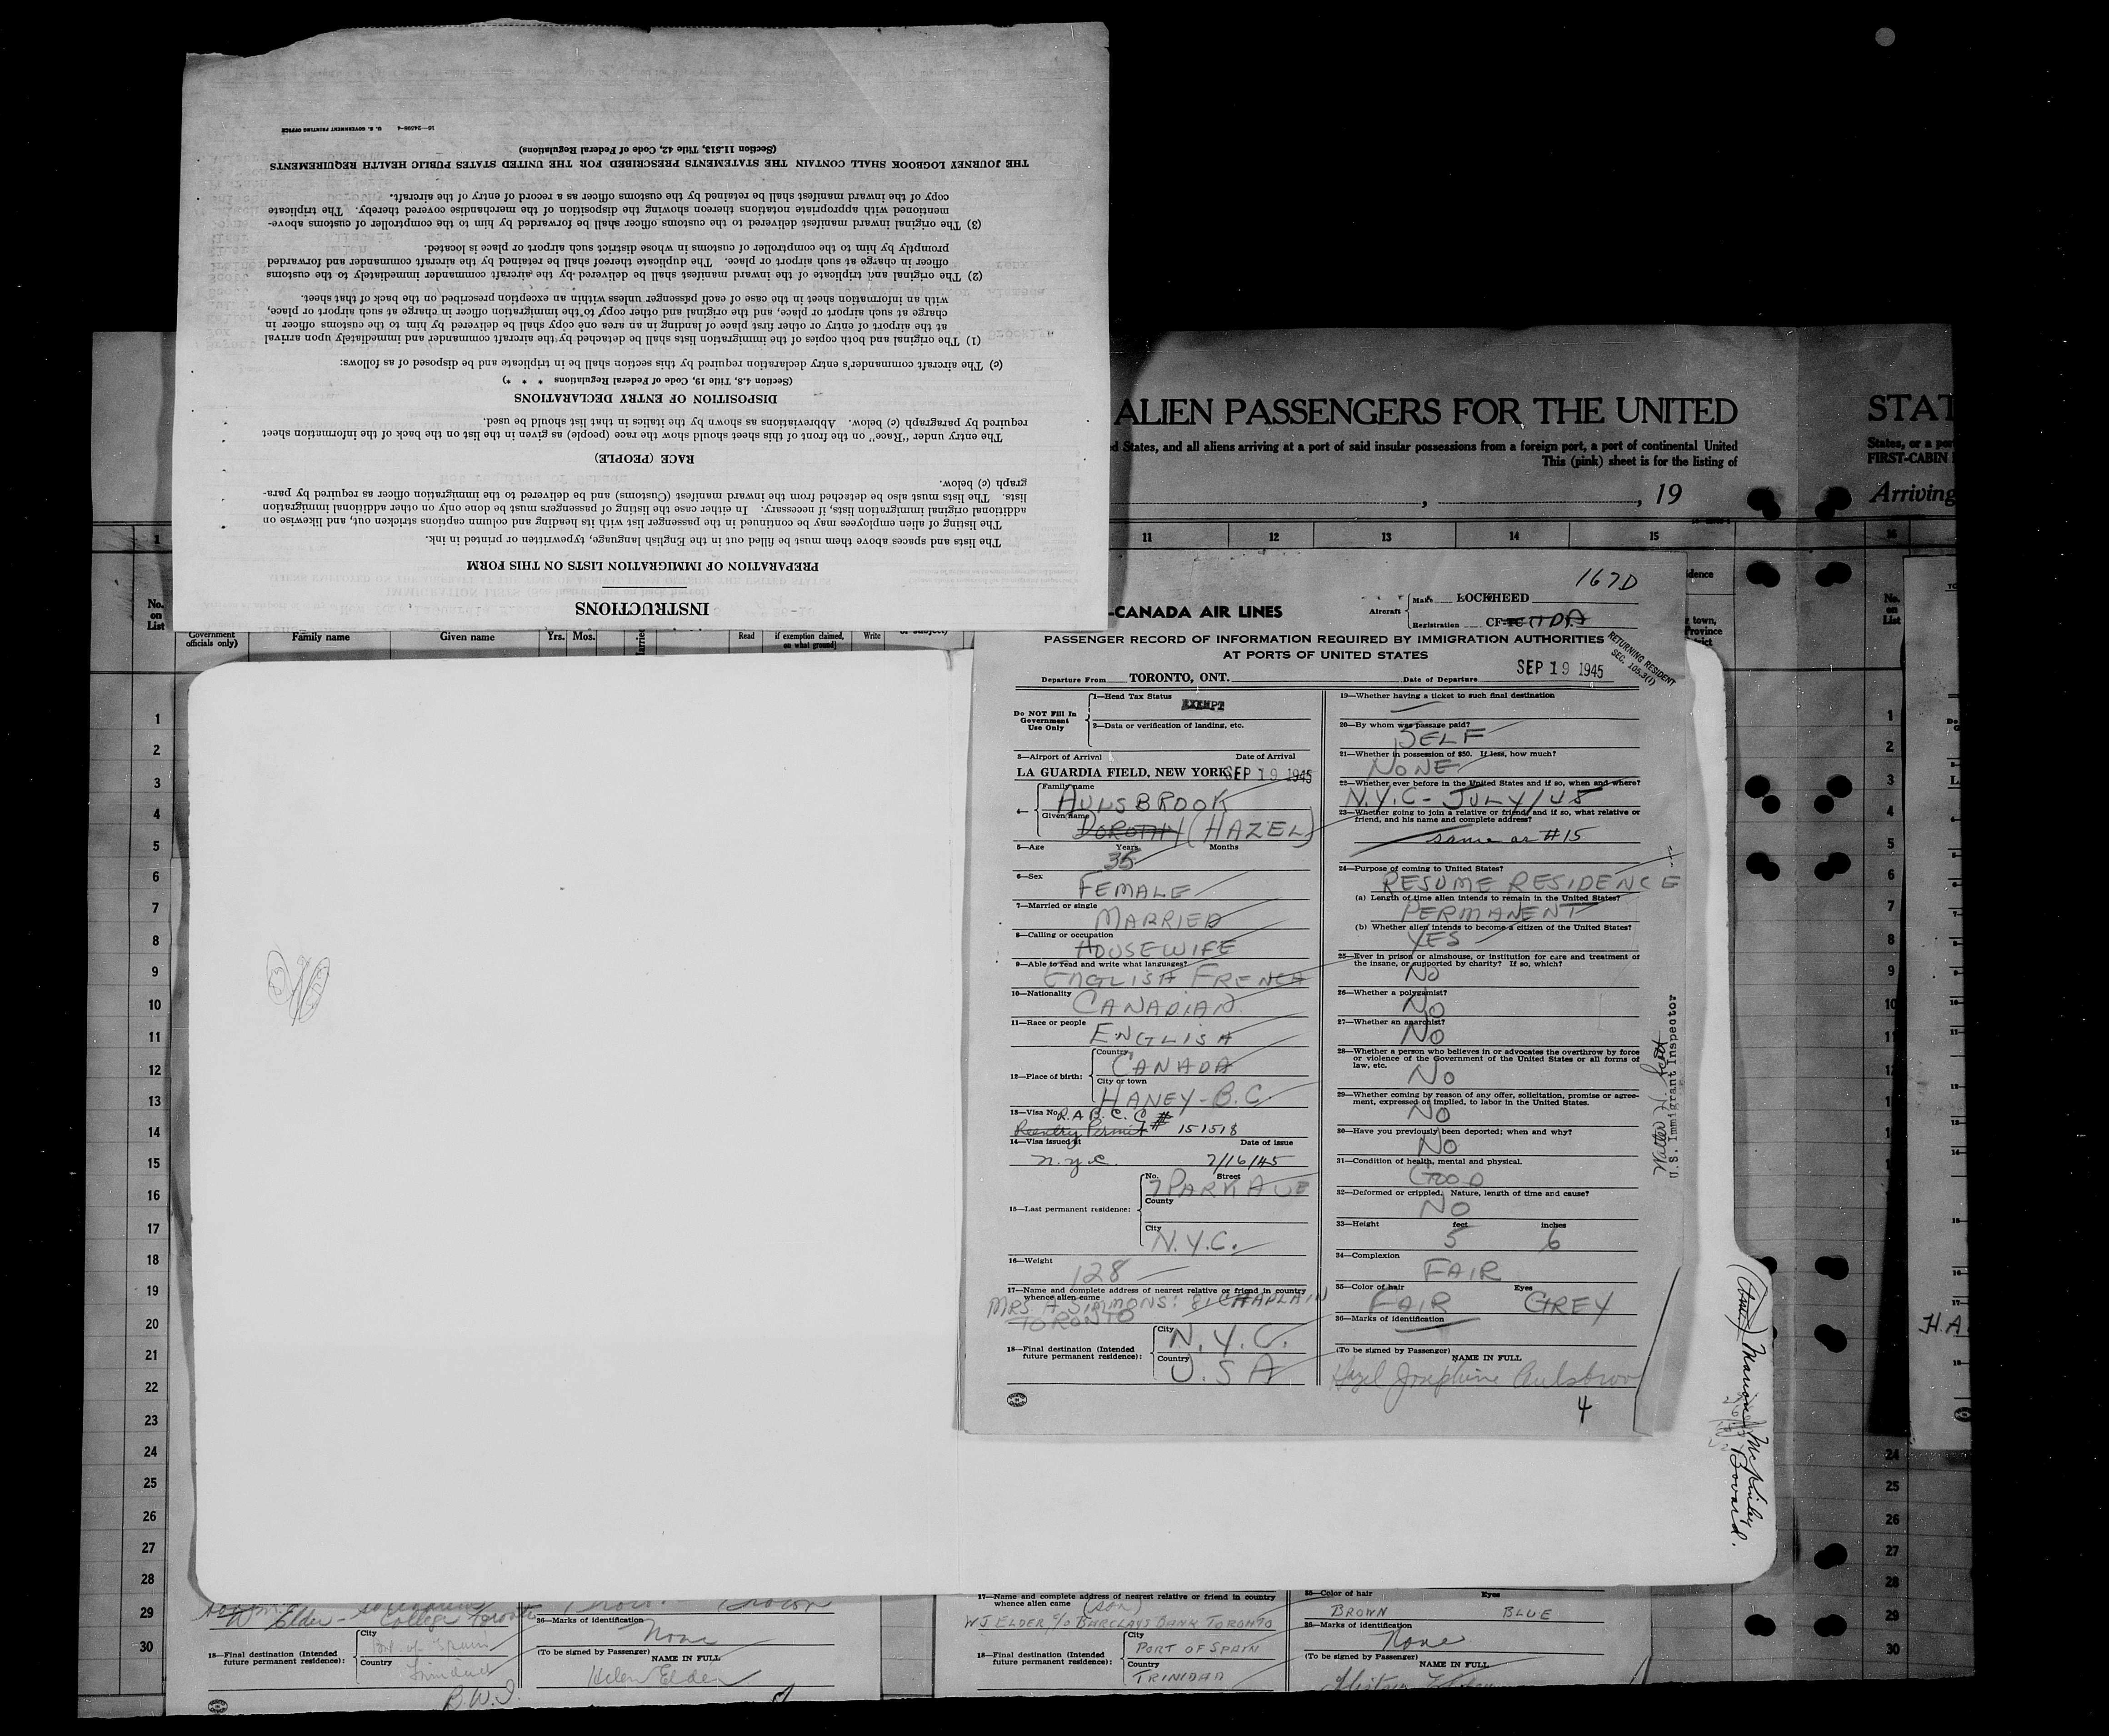 INSTRUCTIONS
PREPARATION OF IMMIGRATION LISTS ON THIS FORM
The lists and spaces above them must be filled out in the English language, typewritten or printed in ink.
The listing of alien employees may be continued in the passenger list with its heading and column captions stricken out, and likewise on
additional original immigration lists, if necessary. In either case the listing of passengers must be done only on other additional immigration
lists. The lists must also be detached from the inward manifest (Customs) and be delivered to the immigration officer as required by para-
graph (c) below.
RACE (PEOPLE)
The entry under "Race" on the front of this sheet should show the race (people) as given in the list on the back of the information sheet
required by paragraph (c) below. Abbreviations as shown by the italics in that list should be used.
DISPOSITION OF ENTRY DECLARATIONS
(Section 4.8, Title 19, Code of Federal Regulations * * *)
(c) The aircraft commander's entry declaration required by this section shall be in triplicate and be disposed of as follows:
(1) The original and both copies of the immigration lists shall be detached by the aircraft commander and immediately upon arrival
at the airport of entry or other first place of landing in an area one copy shall be delivered by him to the customs officer in
charge at such airport or place, and the original and other copy to the immigration officer in charge at such airport or place,
with an information sheet in the case of each passenger unless within an exception prescribed on the back of that sheet.
(2) The original and triplicate of the inward manifest shall be delivered by the aircraft commander immediately to the customs
officer in charge at such airport or place. The duplicate thereof shall be retained by the aircraft commander and forwarded
promptly by him to the comptroller of customs in whose district such airport or place is located.
(3) The original inward manifest delivered to the customs officer shall be forwarded by him to the comptroller of customs above-
mentioned with appropriate notations thereon showing the disposition of the merchandise covered thereby. The triplicate
copy of the inward manifest shall be retained by the customs officer as a record of entry of the aircraft.
THE JOURNEY LOGBOOK SHALL CONTAIN THE STATEMENTS PRESCRIBED FOR THE UNITED STATES PUBLIC HEALTH REQUIREMENTS
(Section 11.513, Title 42, Code of Federal Regulations)
16—24598-4 U. S. GOVERNMENT PRINTING OFFICE
ALIEN PASSENGERS FOR THE UNITED
STAT
d States, and all aliens arriving at a port of said insular possessions from a foreign port, a port of continental United
States, or a por
This (pink) sheet is for the listing of
FIRST-CABIN
, , 19
Arriving
1 11 12 13 14 15 16
No. on List
Government officials only) Family name Given name Yrs. Mos. Read if exemption claimed, on what ground] Write
167D
-CANADA AIR LINES
Aircraft Make LOCKHEED
Registration CF-TC TDA
PASSENGER RECORD OF INFORMATION REQUIRED BY IMMIGRATION AUTHORITIES
AT PORTS OF UNITED STATES
RETURNING RESIDENT
SEC. 105.3(f)
Departure From TORONTO, ONT. Date of Departure SEP 19 1945
Do NOT Fill In Government Use Only
1—Head Tax Status EXEMPT
2—Data or verification of landing, etc.
3—Airport of Arrival Date of Arrival
LA GUARDIA FIELD, NEW YORK SEP 19 1945
4— Family name AULSBROOK
Given name DOROTHY (HAZEL)
5—Age Years 35 Months
6—Sex FEMALE
7—Married or single MARRIED
8—Calling or occupation HOUSEWIFE
9—Able to read and write what languages?
ENGLISH FRENCH
10—Nationality CANADIAN
11—Race or people ENGLISH
12—Place of birth: Country CANADA
City or town HANEY - B.C.
13—Visa No. R.A.B.C.C #
Reentry Permit # 151518
14—Visa issued at Date of issue
N.Y.C. 7/16/45
15—Last permanent residence: No. Street 7 PARK AVE
County
City N.Y.C.
16—Weight 128
17—Name and complete address of nearest relative or friend in country
whence alien came
MRS. A. SIMMONS: 81 CHAPLAIN
TORONTO
18—Final destination (Intended future permanent residence): City N.Y.C.
Country U.S.A
19—Whether having a ticket to such final destination
20—By whom was passage paid?
SELF
21—Whether in possession of $50. If less, how much?
NONE
22—Whether ever before in the United States and if so, when and where?
N.Y.C - JULY/45
23—Whether going to join a relative or friend, and if so, what relative or
friend, and his name and complete address?
same as #15
24—Purpose of coming to United States?
RESUME RESIDENCE
(a) Length of time alien intends to remain in the United States?
PERMANENT
(b) Whether alien intends to become a citizen of the United States?
YES
25—Ever in prison or almshouse, or institution for care and treatment of
the insane, or supported by charity? If so, which?
NO
26—Whether a polygamist?
NO
27—Whether an anarchist?
NO
28—Whether a person who believes in or advocates the overthrow by force
or violence of the Government of the United States or all forms of
law, etc.
NO
29—Whether coming by reason of any offer, solicitation, promise or agree-
ment, expressed or implied, to labor in the United States.
NO
30—Have you previously been deported; when and why?
NO
31—Condition of health, mental and physical.
GOOD
32—Deformed or crippled. Nature, length of time and cause?
NO
33—Height feet inches
5 6
34—Complexion
FAIR
35—Color of hair Eyes
FAIR GREY
36—Marks of identification
(To be signed by Passenger) NAME IN FULL
Hazel Josephine Aulsbroo
4
U.S. Immigrant Inspector
Walter H.
(Aunt) Marion McKinley
Bovaird.
W Elder - College Toronto
Brown
18—Final destination (Intended future permanent residence): City Port of Spain
Country Trinidad
B.W.I.
36—Marks of identification
None
(To be signed by Passenger) NAME IN FULL
Helen Elder
17—Name and complete address of nearest relative or friend in country
whence alien came (SON)
WJ ELDER, c/o BARCLAYS BANK TORONTO
18—Final destination (Intended future permanent residence): City PORT OF SPAIN
Country TRINIDAD
35—Color of hair Eyes
BROWN BLUE
36—Marks of identification
None
(To be signed by Passenger) NAME IN FULL
1
2
3
4
5
6
7
8
9
10
11
12
13
14
15
16
17
18
19
20
21
22
23
24
25
26
27
28
29
30